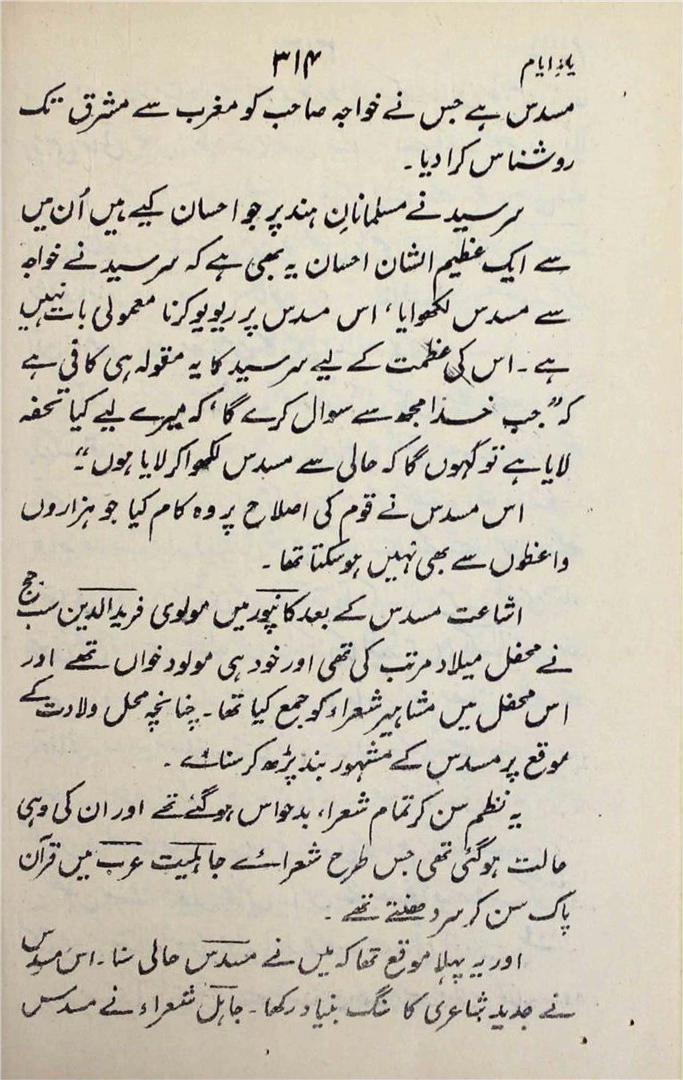 یادِ ایام
۳۱۴
مسدس ہے جس نے خواجہ صاحب کو مغرب سے مشرق تک
روشناس کرا دیا۔
سرسید نے مسلمانانِ ہند پر جو احسان کیے ہیں اُن میں
سے ایک عظیم الشان احسان یہ بھی ہے کہ سرسید نے خواجہ
سے مسدس لکھوایا، اس مسدس پر ریویو کرنا معمولی بات نہیں
ہے۔ اس کی عظمت کے لیے سرسید کا یہ مقولہ ہی کافی ہے
کہ ”جب خدا مجھ سے سوال کرے گا، کہ میرے لیے کیا تحفہ
لایا ہے تو کہوں گا کہ حالی سے مسدس لکھوا کر لایا ہوں“۔
اس مسدس نے قوم کی اصلاح پر وہ کام کیا جو ہزاروں
واعظوں سے بھی نہیں ہو سکتا تھا۔
اشاعت مسدس کے بعد کانپور میں مولوی فریدالدین سب جج
نے محفل میلاد مرتب کی تھی اور خود ہی مولود خواں تھے اور
اس محفل میں مشاہیر شعراء کو جمع کیا تھا۔ چنانچہ محل ولادت کے
موقع پر مسدس کے مشہور بند پڑھ کر سنائے۔
یہ نظم سن کر تمام شعراء بدحواس ہو گئے تھے اور ان کی وہی
حالت ہو گئی تھی جس طرح شعرائے جاہلیت عرب میں قرآن
پاک سن کر سر دھنتے تھے۔
اور یہ پہلا موقع تھا کہ میں نے مسدس حالی سنا۔ اس مسدس
نے جدید شاعری کا سنگ بنیاد رکھا۔ جاہل شعراء نے مسدس